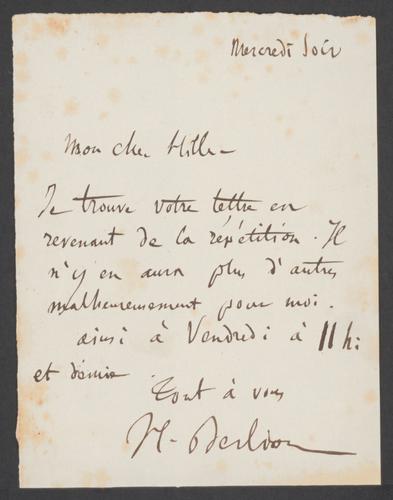 Mercredi soir
Mon cher Hille
Je trouve votre lettre en
revenant de la répétition. Il
n'y en aura plus d'autres
malheureusement pour moi.
ainsi à Vendredi à 11 h:
et demie
Tout à vous
H. Berlioz